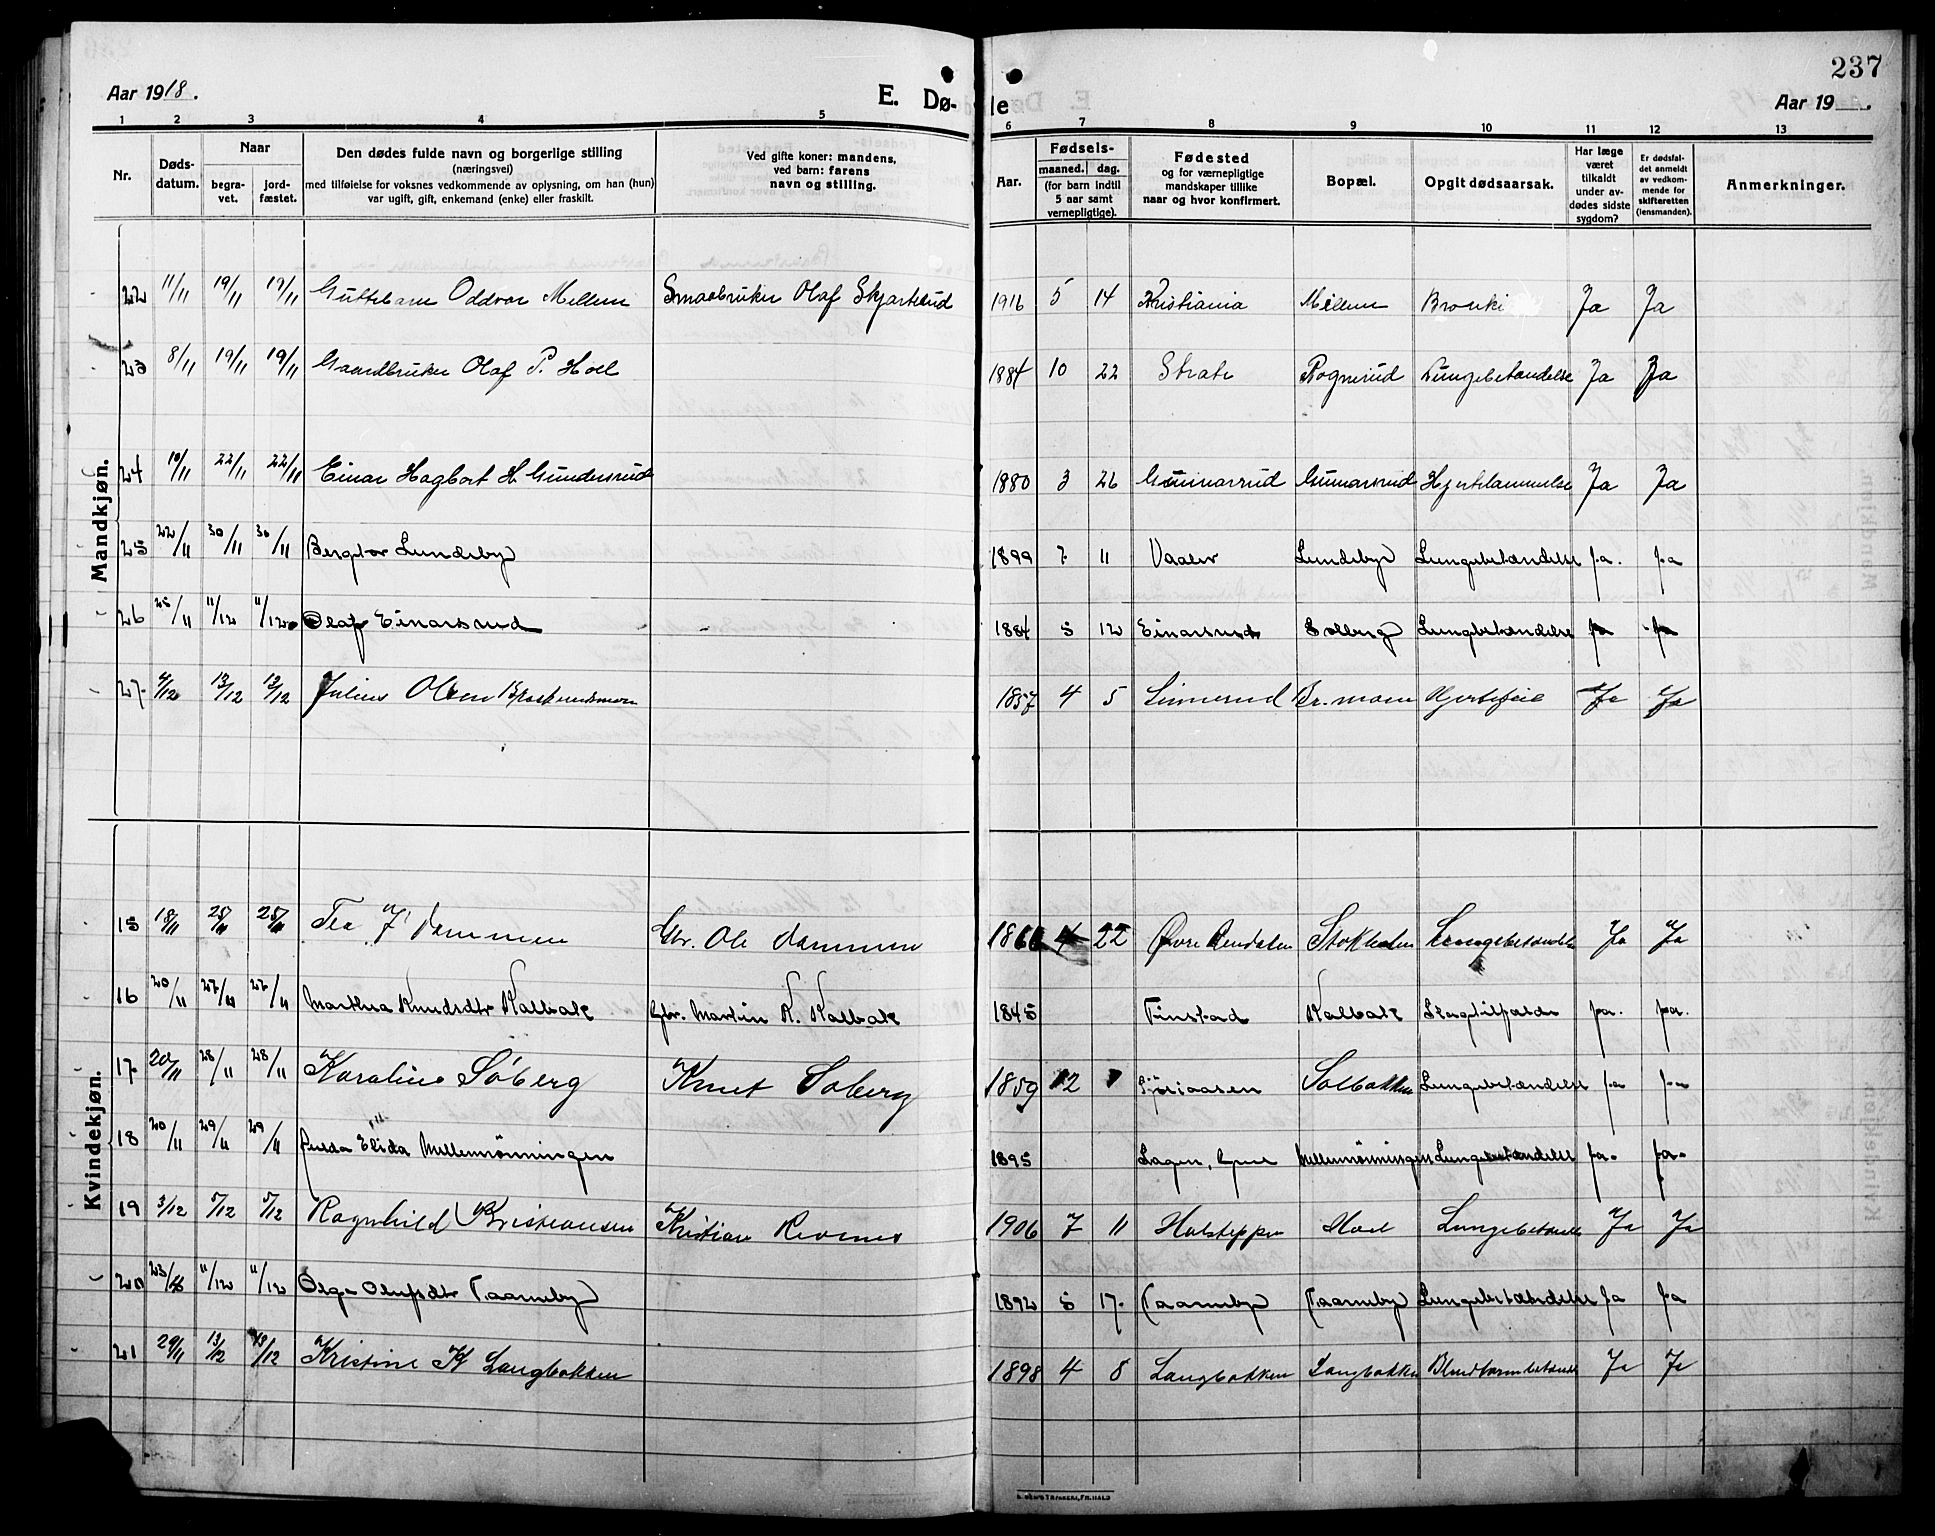 237
Aar 1918. E. Dø- de Aar 19 .
1 2 3 4 5 6 7 8 9 10 11 12 13
Nr. Døds-datum. Naar begra-vet. jord-fæstet. Den dødes fulde navn og borgerlige stilling (næringsvei) med tilføielse for voksnes vedkommende av oplysning, om han (hun) var ugift, gift, enkemand (enke) eller fraskilt. Ved gifte koner: mandens, ved barn: farens navn og stilling. Aar. Fødsels- maaned. dag. (for barn indtil 5 aar samt vernepligtige). Fødested og for værnepligtige mandskaper tillike naar og hvor konfirmert. Bopæl. Opgit dødsaarsak. Har læge været tilkaldt under av-dødes sidste sygdom? Er dødsfal-det anmeldt av vedkom-mende for skifteretten (lensmanden). Anmerkninger.
Mandkjøn.
22 11/11 19/11 19/11 Guttebarn Oddvar Mellem Smaabruker Olaf Skjartsrud 1916 5 14 Kristiania Mellem Bronki Ja Ja
23 8/11 19/11 19/11 Gaardbruker Olaf P. Hoel 1884 10 22 Strate Rognerud Lungebetændelse Ja Ja
24 10/11 22/11 22/11 Einar Hagbart H. Gundersrud 1880 3 26 Gunnarsrud Gunnarsrud Hjertelammelse Ja Ja
25 22/11 30/11 30/11 Bergitor Lundeby 1899 7 11 Vaaler Lundeby Lungebetændelse ja. ja
26 25/11 11/12 11/12 Olaf Einarsrud 1884 5 12 Einarsrud Solberg Lungebetændelse ja ja
27. 4/12 13/12 13/12 Julius Olsen Braskerudsmoen 1857 4 5 Linnerud Br.moen Hjertefeil Ja Ja
Kvindekjøn.
15 18/11 25/11 25/11 Tea J. Dammen Gbr. Ole Dammen 186 4 22 Øvre Rendalen Stokholen Lungebetændelse Ja Ja
16 20/11 27/11 27/11 Marthea Knudsdtr Kalbak Gbr. Martin K. Kalbak 1845 Finstad Kalbak Slagtilfælde ja. ja.
17. 20/11 28/11 28/11 Karoline Søberg Knut Søberg 1859 12 1 Solbakken Lungebetændelse ja ja
18 20/11 29/11 29/11 Elida Mellemrönningen 1895 Mellemrönningen Lungebetændelse ja. ja.
19 3/12 7/12 7/12 Ragnhild Kristiansen Kristian 1906 7 11 Moe Lungebetændelse Ja Ja
20 23/11 11/12 11/12 Olga Olufsdtr Taarneby 1892 5 17. Taarneby Taarneby Lungebetændelse ja ja
21 29/11 13/12 13/12 Kristine K Langbakken 1898 4 8 Langbakken Langbakken Blindtarmbetændelse Ja Ja